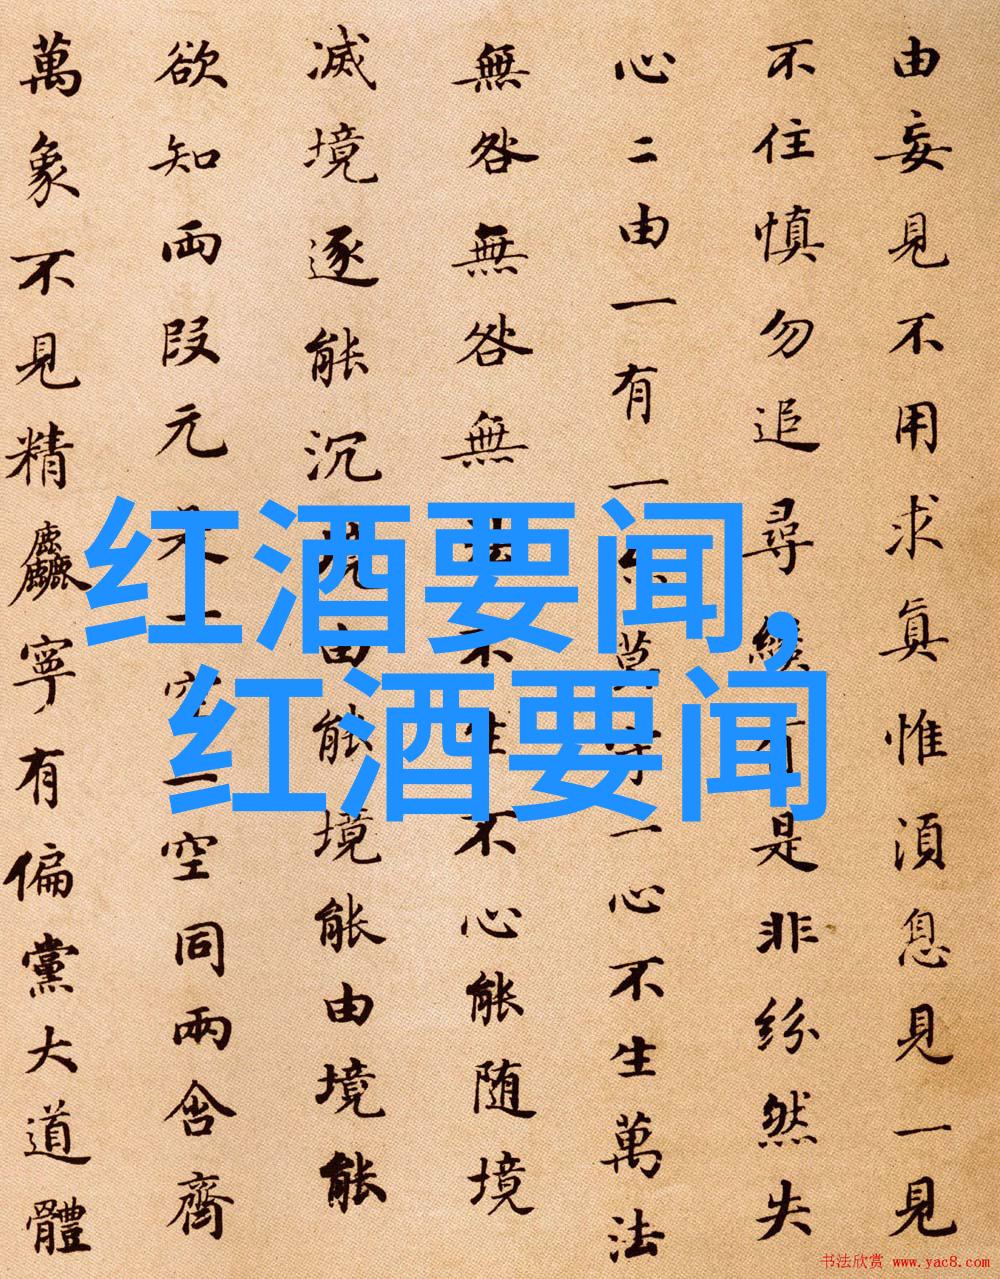 由妄見不用求眞惟湏息見一見
不住慎勿追尋纔有是非紛然失
心二由一有一亦莫守一心不生萬法
無咎無咎無法不生不心能随境
滅境逐能沉境由能境能由境能
欲知兩段元是一空一空同兩含齊
萬象不見精麤寧有偏黨大道體
红酒要闻,
红酒要闻
书法欣赏 www.yac8.com